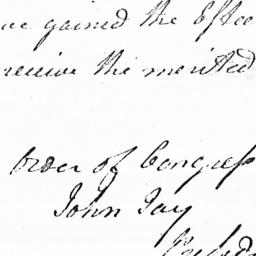 ve gained the Estee
receive the merited
Order of Congress
John Jay
Presid